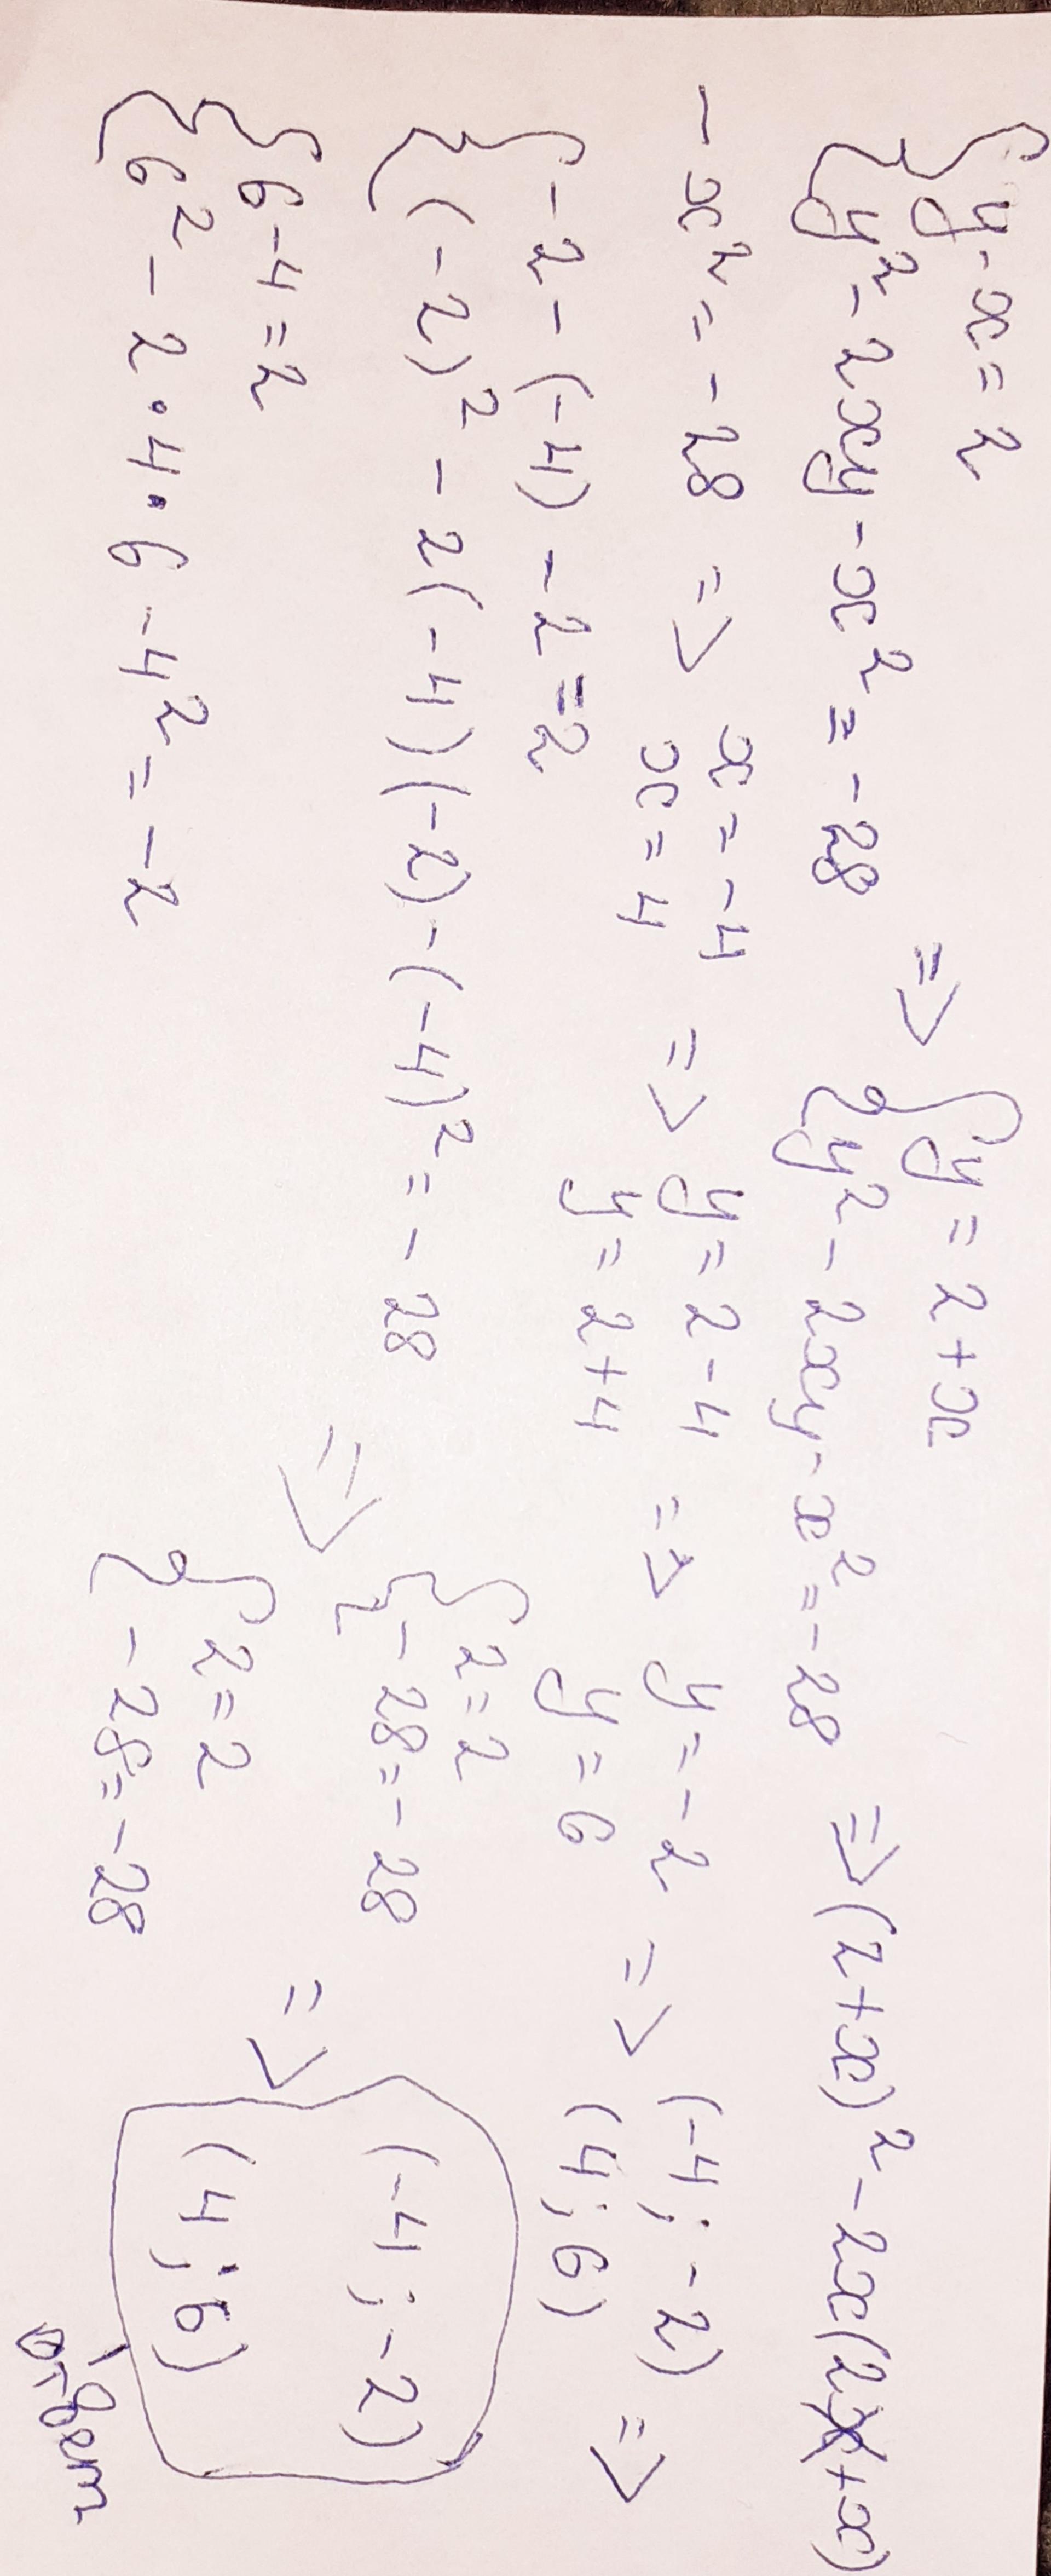 { y - x = 2
{ y² - 2xy - x² = -28 => { y = 2 + x
{ y² - 2xy - x² = -28 => (2 + x)² - 2x(2 + x)
- x² = -28 => x = -4
x = 4 => y = 2 - 4
y = 2 + 4 => y = -2
y = 6 => (-4; -2)
(4; 6) =>
{ -2 - (-4) - 2 = 2
{ (-2)² - 2(-4)(-2) - (-4)² = -28
{ 6 - 4 = 2
{ 6² - 2 · 4 · 6 - 4² = -2
=> { 2 = 2
{ -28 = -28
{ 2 = 2
{ -28 = -28 => (-4; -2)
(4; 6)
Ответ